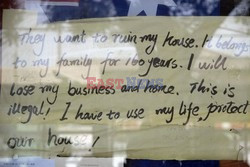 They want to ruin my house. It belongs
to my family for 160 years. I will
lose my business and home. This is
illegal! I have to use my life, protect
our house!
EastNews